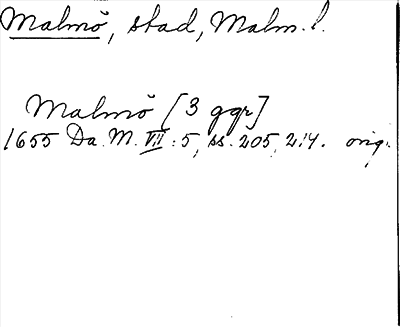 Malmö, stad, Malm. l.
Malmö [3 ggr]
1655 Da. M. VII: 5, ss. 205, 214. orig.